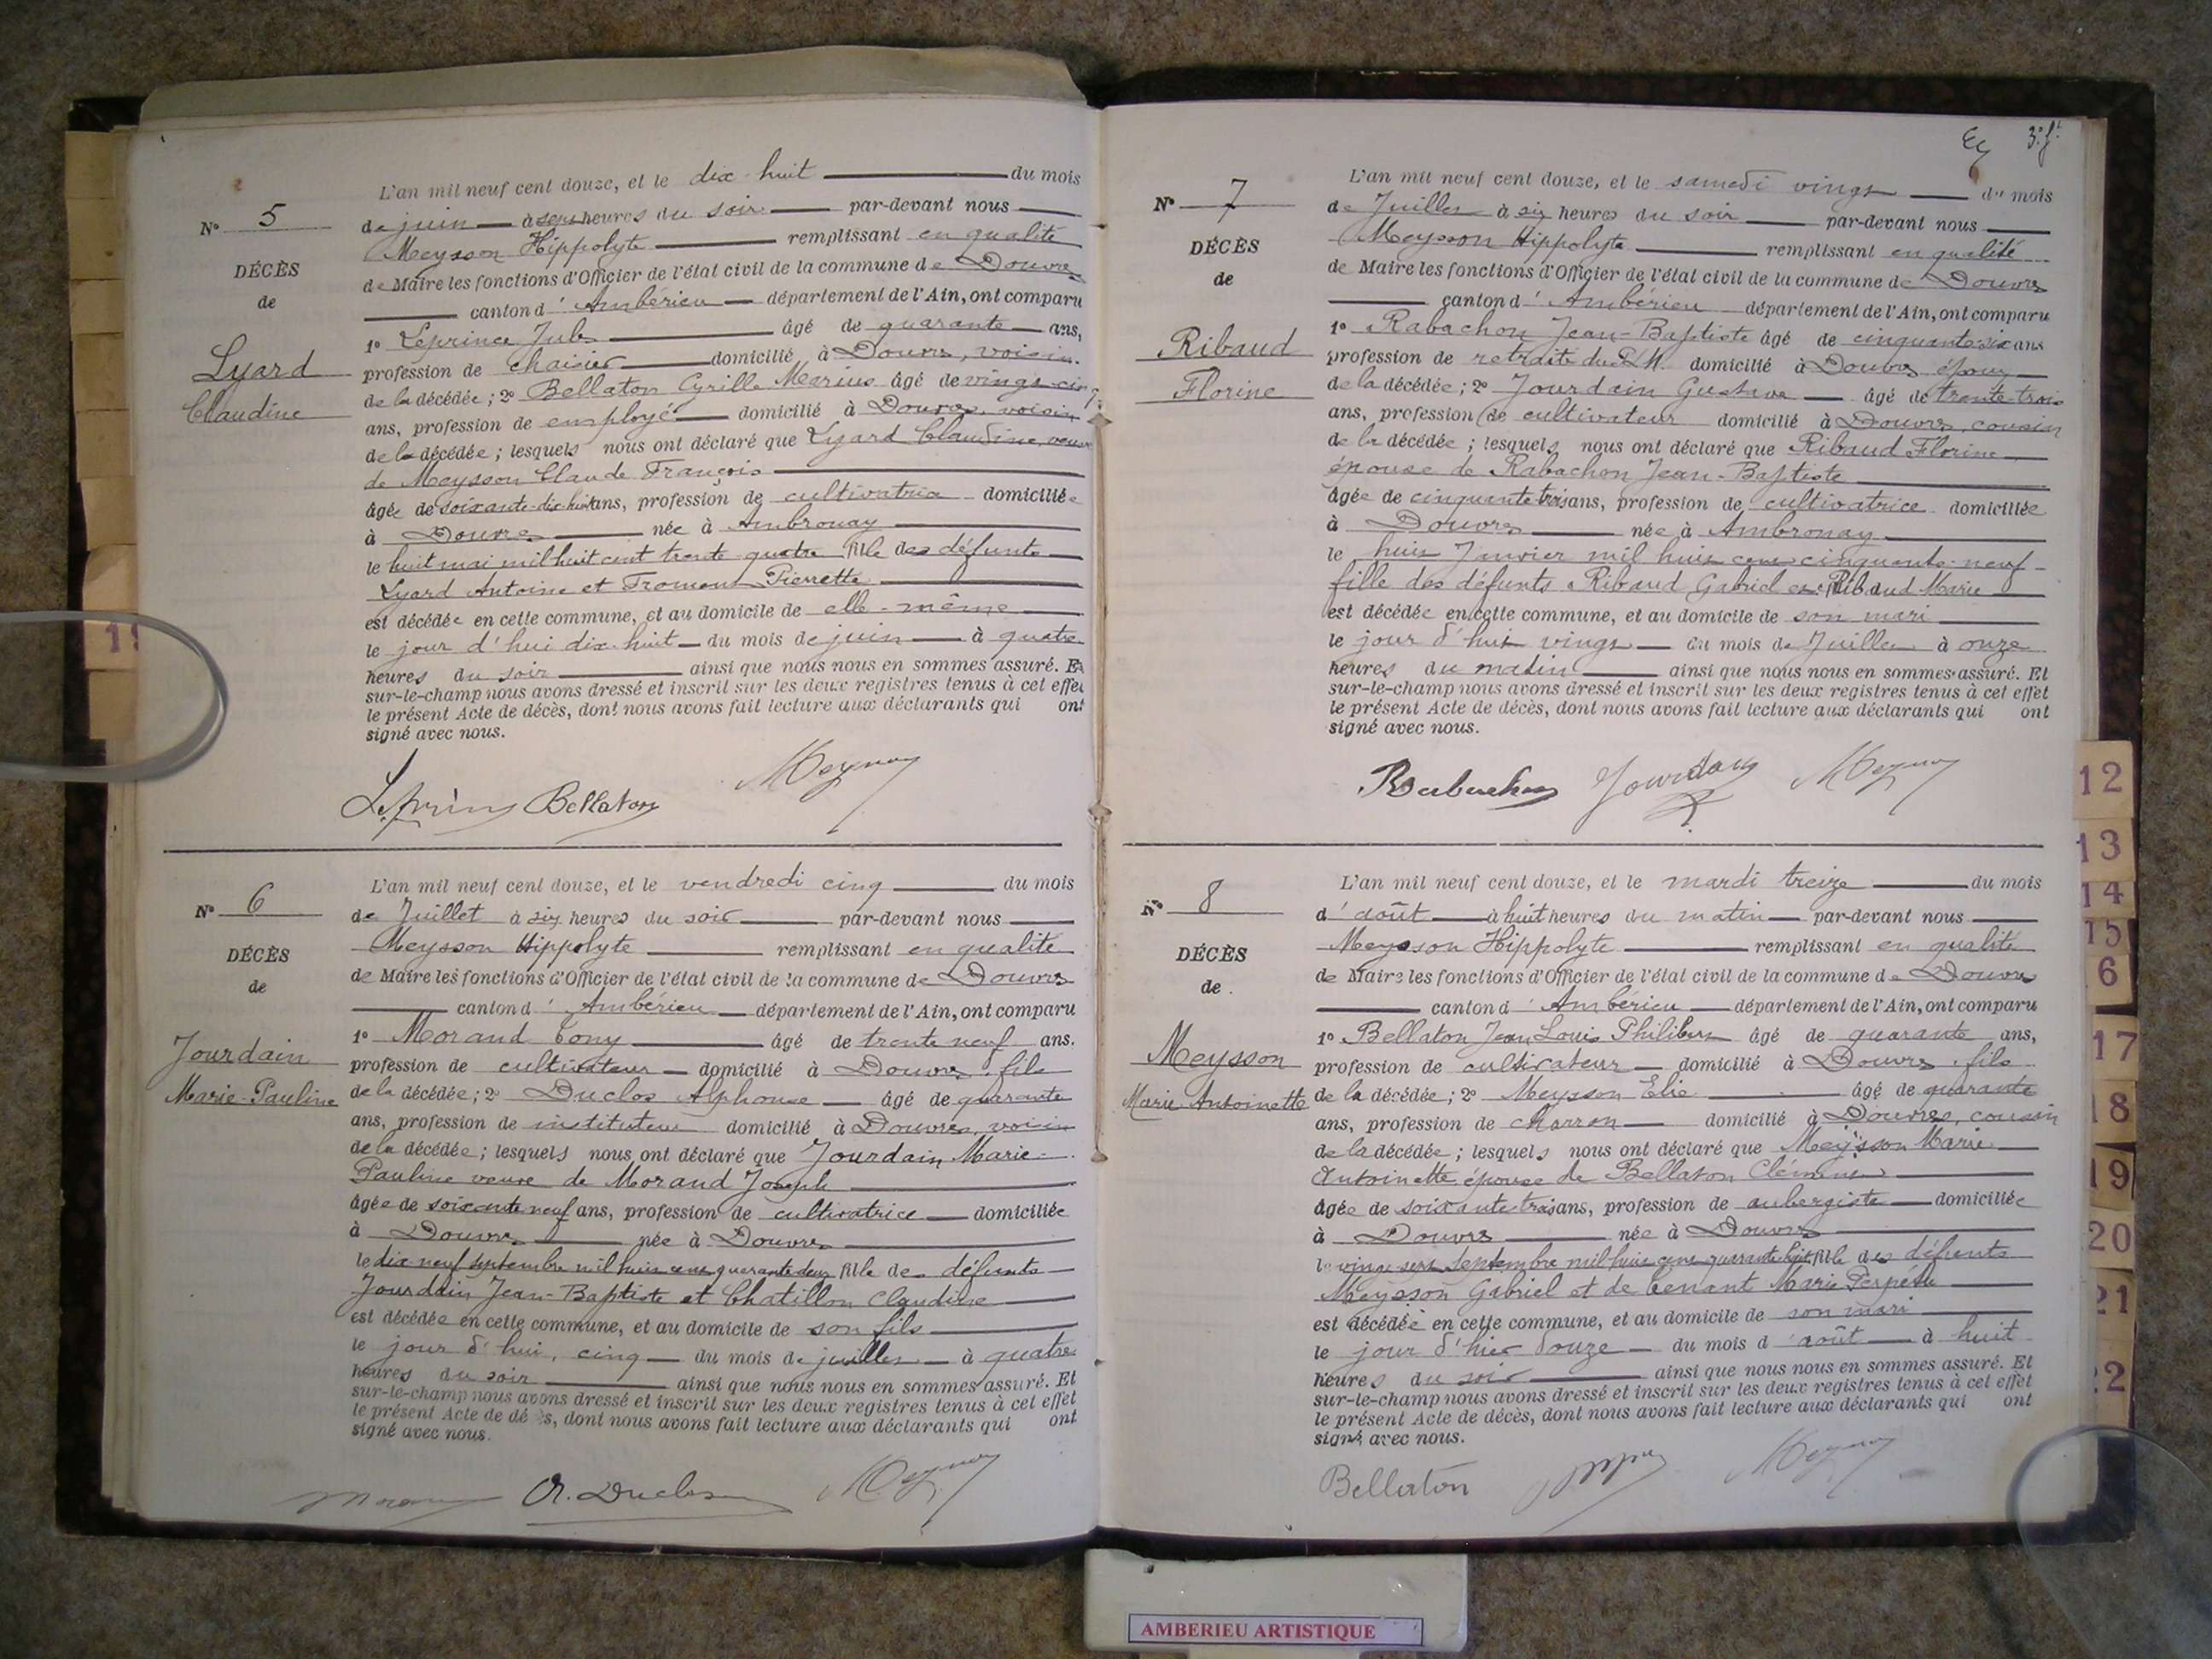 L'an mil neuf cent douze, et le dix-huit du mois
N° 5
de juin à sept heures du soir par-devant nous
Meysson Hippolyte remplissant en qualité
DÉCÈS
de Maire les fonctions d'Officier de l'état civil de la commune de Douvres
de
canton d'Ambérieu département de l'Ain, ont comparu
1° Leprince Jules âgé de quarante ans,
Lyard
profession de chaisier domicilié à Douvres, voisin
de la décédée; 2° Bellaton Cyrille Marius âgé de vingt-cinq
Claudine
ans, profession de employé domicilié à Douvres, voisin
de la décédée; lesquels nous ont déclaré que Lyard Claudine, veuve
de Meysson Claude François
âgée de soixante-dix-huit ans, profession de cultivatrice domiciliée
à Douvres née à Ambronay
le huit mai mil huit cent trente quatre fille des défunts
Lyard Antoine et Froment Pierrette
est décédée en cette commune, et au domicile de elle-même
le jour d'hui dix-huit du mois de juin à quatre
heures du soir ainsi que nous nous en sommes assuré. Et
sur-le-champ nous avons dressé et inscrit sur les deux registres tenus à cet effet
le présent Acte de décès, dont nous avons fait lecture aux déclarants qui ont
signé avec nous.
Leprince Bellaton Meysson
L'an mil neuf cent douze, et le vendredi cinq du mois
N° 6
de Juillet à six heures du soir par-devant nous
Meysson Hippolyte remplissant en qualité
DÉCÈS
de Maire les fonctions d'Officier de l'état civil de la commune de Douvres
de
canton d'Ambérieu département de l'Ain, ont comparu
1° Morand Tony âgé de trente neuf ans.
Jourdain
profession de cultivateur domicilié à Douvres, fils
Marie-Pauline
de la décédée; 2° Duclos Alphonse âgé de quarante
ans, profession de instituteur domicilié à Douvres, voisin
de la décédée; lesquels nous ont déclaré que Jourdain Marie-
Pauline veuve de Morand Joseph
âgée de soixante neuf ans, profession de cultivatrice domiciliée
à Douvres née à Douvres
le dix-neuf septembre mil huit cent quarante deux fille des défunts
Jourdain Jean-Baptiste et Chatillon Claudine
est décédée en cette commune, et au domicile de son fils
le jour d'hui, cinq du mois de juillet à quatre
heures du soir ainsi que nous nous en sommes assuré. Et
sur-le-champ nous avons dressé et inscrit sur les deux registres tenus à cet effet
le présent Acte de dé ès, dont nous avons fait lecture aux déclarants qui ont
signé avec nous.
Morand A. Duclos Meysson
3e ft
L'an mil neuf cent douze, et le samedi vingt du mois
N° 7
de Juillet à six heures du soir par-devant nous
Meysson Hippolyte remplissant en qualité
DÉCÈS
de Maire les fonctions d'Officier de l'état civil de la commune de Douvres
de
canton d'Ambérieu département de l'Ain, ont comparu
1° Rabachon Jean-Baptiste âgé de cinquante-six ans
Ribaud
profession de retraité du P.L.M. domicilié à Douvres époux
Florine
de la décédée; 2° Jourdain Gustave âgé de trente-trois
ans, profession de cultivateur domicilié à Douvres, cousin
de la décédée; lesquels nous ont déclaré que Ribaud Florine
épouse de Rabachon Jean-Baptiste
âgée de cinquante trois ans, profession de cultivatrice domiciliée
à Douvres née à Ambronay
le huit Janvier mil huit cent cinquante-neuf
fille des défunts Ribaud Gabriel et Ribaud Marie
est décédée en cette commune, et au domicile de son mari
le jour d'hui vingt du mois de Juillet à onze
heures du matin ainsi que nous nous en sommes assuré. Et
sur-le-champ nous avons dressé et inscrit sur les deux registres tenus à cet effet
le présent Acte de décès, dont nous avons fait lecture aux déclarants qui ont
signé avec nous.
Rabachon Jourdain Meysson
L'an mil neuf cent douze, et le mardi treize du mois
N° 8
d'août à huit heures du matin par-devant nous
Meysson Hippolyte remplissant en qualité
DÉCÈS
de Maire les fonctions d'Officier de l'état civil de la commune de Douvres
de
canton d'Ambérieu département de l'Ain, ont comparu
1° Bellaton Jean Louis Philibert âgé de quarante ans,
Meysson
profession de cultivateur domicilié à Douvres, fils
Marie Antoinette
de la décédée; 2° Meysson Elie âgé de quarante
ans, profession de charron domicilié à Douvres, cousin
de la décédée; lesquels nous ont déclaré que Meysson Marie
Antoinette épouse de Bellaton Clément
âgée de soixante-trois ans, profession de aubergiste domiciliée
à Douvres née à Douvres
le vingt sept septembre mil huit cent quarante huit fille des défunts
Meysson Gabriel et de Tenant Marie Perpétue
est décédée en cette commune, et au domicile de son mari
le jour d'hier douze du mois d'août à huit
heures du soir ainsi que nous nous en sommes assuré. Et
sur-le-champ nous avons dressé et inscrit sur les deux registres tenus à cet effet
le présent Acte de décès, dont nous avons fait lecture aux déclarants qui ont
signé avec nous.
Bellaton Meysson
12
13
14
15
6
17
18
19
20
21
22
AMBERIEU ARTISTIQUE